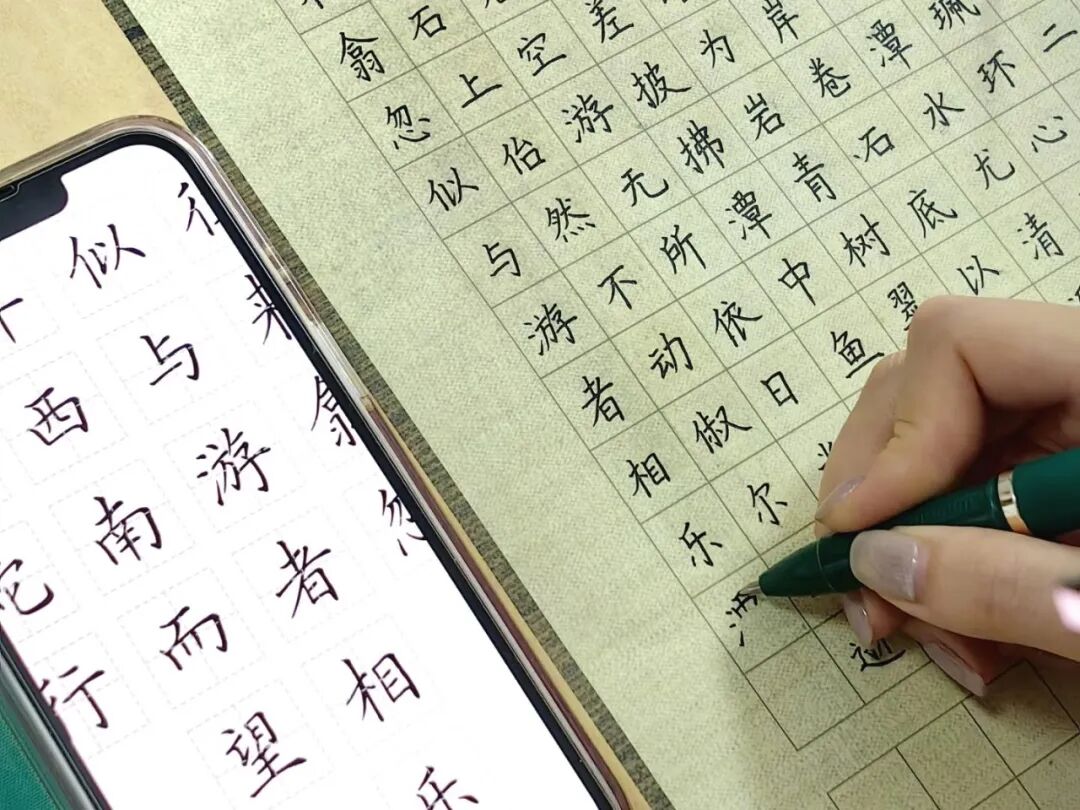 来翕忽
似与游者相乐
西南而望
行
二
环心
潭水尤清
岸卷石底以
为岩青树翠
差披拂潭中鱼
空游无所依日
石上佁然不动俶尔
翕忽似与游者相乐